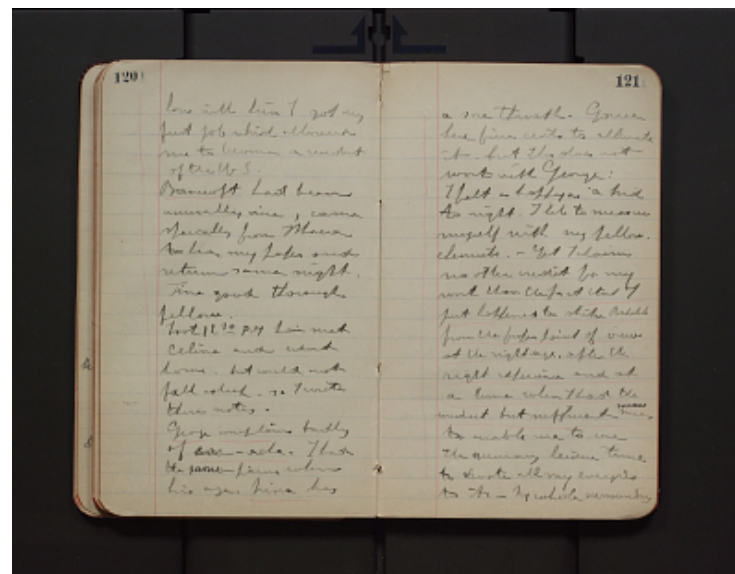 120
love with him I got my
first job which allowed
me to become a resident
of the U.S.
Bancroft had been
unusually nice, came
specially from
to hear my paper and
return same night.
Fine good thorough
fellow.
Took 12 30 train met
Celine and went
home. but could not
fall asleep. so I write
these notes.
George complains badly
of ear-ache. I had
the same pains when
his age. Nina has
121
a sore throat. Gives
her five cents to alleviate
it. but this does not
work with George!
I felt as happy as a kid
to night. I like to measure
myself with my fellow.
chemists. - Yet I claim
no other credit for my
work than the fact that I
just happened to strike
from the proper point of view
at the right age, after the
right experience and at
a time when I had the
modest but sufficient means
to enable me to use
the necessary leisure time
to devote all my energies
to it -